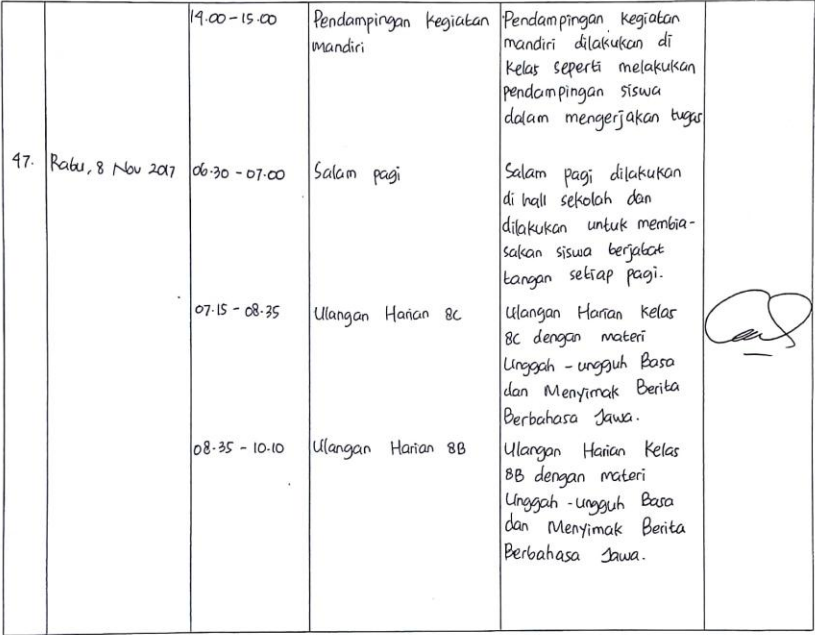 14.00 - 15.00 Pendampingan kegiatan Pendampingan kegiatan
mandiri mandiri dilakukan di
kelas seperti melakukan
pendampingan siswa
dalam mengerjakan tugas
47. Rabu, 8 Nov 2017 06.30 - 07.00 Salam pagi Salam pagi dilakukan
di hall sekolah dan
dilakukan untuk membia-
sakan siswa berjabat
tangan setiap pagi.
07.15 - 08.35 Ulangan Harian 8C Ulangan Harian Kelas
8C dengan materi
Unggah - ungguh Basa
dan Menyimak Berita
Berbahasa Jawa.
08.35 - 10.10 Ulangan Harian 8B Ulangan Harian Kelas
8B dengan materi
Unggah - ungguh Basa
dan Menyimak Berita
Berbahasa Jawa.